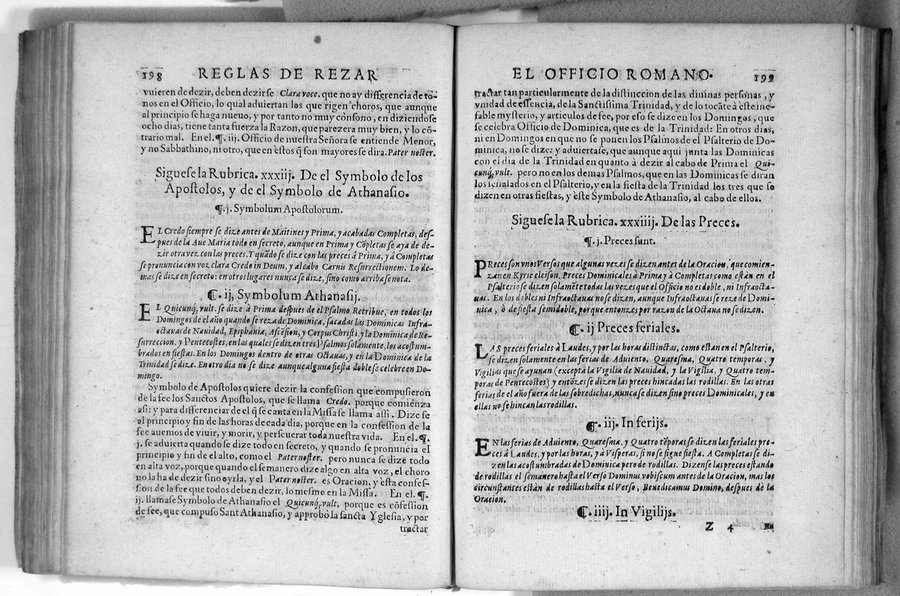 198 REGLAS DE REZAR
vuieren de dezir, deben dezirse Clara voce. que no ay differencia de to-
nos en el Officio, lo qual aduiertan los que rigen choros, que aunque
al principio se haga nueuo, y por tanto no muy cõsono, en diziendose
ocho dias, tiene tanta fuerza la Razon, que parezera muy bien, y lo cõ-
trario mal. En el. ¶. iij. Officio de nuestra Señora se entiende Menor,
y no Sabbathino, ni otro, que en estos q̃ son mayores se dira. Pater noster.
Siguese la Rubrica. xxxiij. De el Symbolo de los
Apostolos, y de el Symbolo de Athanasio.
¶. j. Symbolum Apostolorum.
EL Credo siempre se dize antes de Maitines y Prima, y acabadas Completas, des-
pues de la Aue Maria todo en secreto, aunque en Prima y Cõpletas se aya de de-
zir otra vez con las preces. Y quãdo se dize con las preces à Prima, y à Completas
se pronuncia con voz clara Credo in Deum, y al cabo Carnis Resurrectionem. Lo de-
mas se dize en secreto: en otro lugar es nunca se dize, sino como arriba se nota.
¶. ij, Symbolum Athanasij.
EL Quicunq, vult. se dize à Prima despues de el Psalmo Retribue, en todos los
Domingos de el año quando se reza de Dominica, sacadas las Dominicas Infra-
octauas de Nauidad, Epiphania, Ascẽsion, y Corpus Christi, y la Dominica de Re-
surreccion, y Pentecostes, en las quales se dizen tres Psalmos solamente, los acostum-
brados en fiestas. En los Domingos dentro de otras Octauas, y en la Dominica de la
Trinidad se dize. En otro dia no se dize aunque alguna fiesta doble se celebre en Do-
mingo.
Symbolo de Apostolos quiere dezir la confession que compusieron
de la fee los Sanctos Apostolos, que se llama Credo. porque comienza
asi: y para differenciar de el q̃ se canta en la Missa se llama assi. Dize se
al principio y fin de las horas de cada dia, porque en la confession de la
fee auemos de viuir, y morir, y perseuerar toda nuestra vida. En el. ¶.
j. se aduierta quando se dize todo en secreto, y quando se pronuncia el
principio y fin de alto, como el Pater noster. pero nunca se dize todo
en alta voz, porque quando el semanero dize algo en alta voz, el choro
no la ha de dezir sino oyrla, y el Pater noster. es Oracion, y esta confes-
sion de la fee que todos deben dezir, lo mesmo en la Missa. En el. ¶.
ij. llamase Symbolo de Athanasio el Quicunq, vult, porque es cõfession
de fee, que compuso Sant Athanasio, y approbò la sancta Yglesia, y por
tractar
EL OFFICIO ROMANO. 199
tractar tan particularmente de la distinccion de las diuinas personas, y
vnidad de essencia, de la Sanctissima Trinidad, y de lo tocãte à este ine-
fable mysterio, y articulos de fee, por eso se dize en los Domingos, que
se celebra Officio de Dominica, que es de la Trinidad: En otros dias,
ni en Domingos en que no se ponen los Psalmos de el Psalterio de Do-
minica, no se dize: y aduiertase, que aunque aqui junta las Dominicas
con el dia de la Trinidad en quanto à dezir al cabo de Prima el Qui-
cunq, vult. pero no en los demas Psalmos, que en las Dominicas se diran
los señalados en el Psalterio, y en la fiesta de la Trinidad los tres que se
dizen en otras fiestas, y este Symbolo de Athanasio, al cabo de ellos.
Siguese la Rubrica. xxxiiij. De las Preces.
¶. j. Preces sunt.
PReces son vnos Versos que algunas vezes se dizen antes de la Oracion, que comien-
zan en Kyrie eleison. Preces Dominicales à Prima y à Completas como estàn en el
Psalterio se dizen solamẽte todas las vezes que el Officio no es doble, ni Infraocta-
uas. En los dobles ni Infraoctauas no se dizen, aunque Infraoctauas se reze de Domi-
nica, ò de fiesta semidoble, porque entonzes por razon de la Octaua no se dizen.
¶. ij Preces feriales.
LAs preces feriales à Laudes, y por las horas distinctas, como estan en el Psalterio,
se dizen solamente en las ferias de Aduiento, Quaresma, Quatro temporas, y
Vigilias que se ayunan (excepta la Vigilia de Nauidad, y la Vigilia, y Quatro tem-
poras de Pentecostes) y entõzes se dizen las preces hincadas las rodillas. En las otras
ferias de el año fuera de las sobredichas, nunca se dizen sino preces Dominicales, y en
ellas no se hincan las rodillas.
¶. iij. In ferijs.
EN las ferias de Aduiento, Quaresma, y Quatro tẽporas se dizen las feriales pre-
ces à Laudes, y por las horas, y à Visperas, si no se sigue fiesta. A Completas se di-
zen las acostumbradas de Dominica pero de rodillas. Dizense las preces estando
de rodillas el semanero hasta el Verso Dominus vobiscum antes de la Oracion, mas los
circunstantes estàn de rodillas hasta el Verso, Benedicamus Domino, despues de la
Oracion.
¶. iiij. In Vigilijs.
Z 4